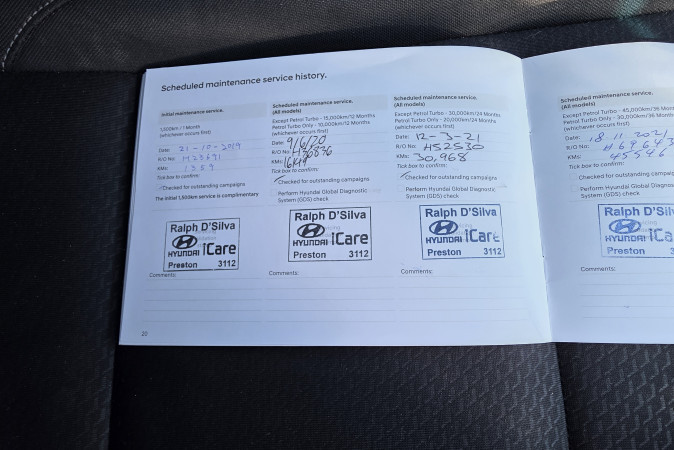 Scheduled maintenance service history.
Initial maintenance service.
1,500km / 1 Month
(whichever occurs first)
Date: 21-10-2019
R/O No:
KMs: 1359
Tick box to confirm:
Checked for outstanding campaigns
The initial 1,500km service is complimentary
Ralph D'Silva
HYUNDAI iCare
Preston 3112
Comments:
Scheduled maintenance service.
(All models)
Except Petrol Turbo - 15,000km/12 Months
Petrol Turbo Only - 10,000km/12 Months
(whichever occurs first)
Date: 9/6/20
R/O No:
KMs:
Tick box to confirm:
Checked for outstanding campaigns
Perform Hyundai Global Diagnostic
System (GDS) check
Ralph D'Silva
HYUNDAI iCare
Preston 3112
Comments:
Scheduled maintenance service.
(All models)
Except Petrol Turbo - 30,000km/24 Months
Petrol Turbo Only - 20,000km/24 Months
(whichever occurs first)
Date: 12-3-21
R/O No: H52530
KMs: 30,968
Tick box to confirm:
Checked for outstanding campaigns
Perform Hyundai Global Diagnostic
System (GDS) check
Ralph D'Silva
HYUNDAI iCare
Preston 3112
Comments:
20
Scheduled maintenance service.
(All models)
Except Petrol Turbo - 45,000km/36 Mon
Petrol Turbo Only - 30,000km/36 Month
(whichever occurs first)
Date: 18-11-2021
R/O No:
KMs: 45546
Tick box to confirm:
Checked for outstanding campaigns
Perform Hyundai Global Diagnostic
System (GDS) check
Ralph D'Silv
HYUNDAI iCa
Preston 3
Comments: